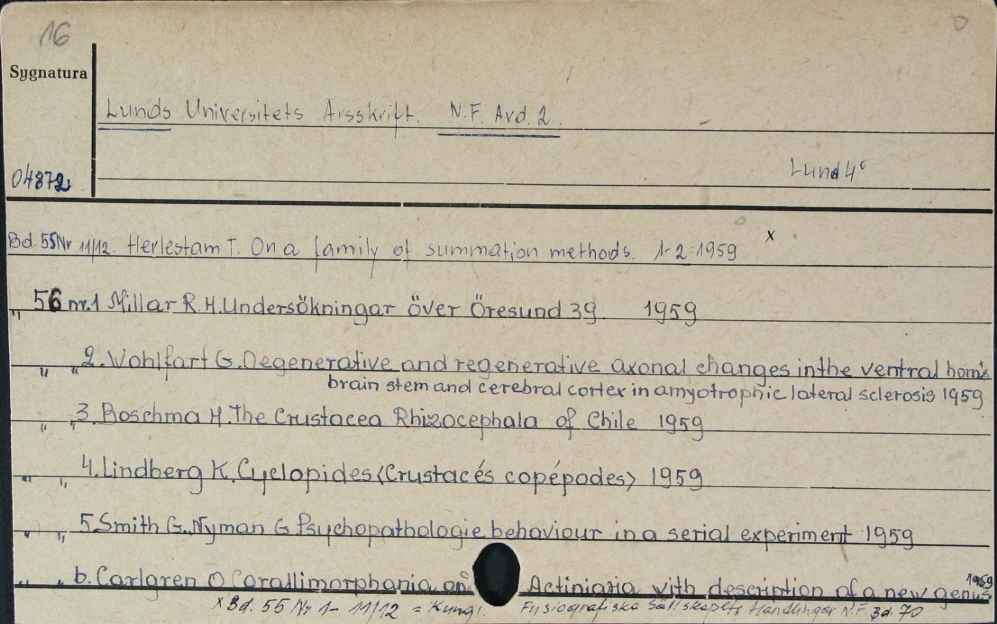 16
Sygnatura
Lunds Universitets Årsskrift. N.F. Avd. 2.
Lund 4°
04872
Bd. 55 Nr 11/12. Herlestam T. On a family of summation methods. 1-2 1959 x
" 56 nr.1 Millar R.H. Undersökningar över Öresund 39. 1959
" " 2. Wohlfart G. Degenerative and regenerative axonal changes in the ventral horns
brain stem and cerebral cortex in amyotrophic lateral sclerosis 1959
" " 3. Boschma H. The Crustacea Rhizocephala of Chile 1959
" " 4. Lindberg K. Cyclopides (Crustacés copépodes) 1959
" " 5. Smith G. Nyman G Psychopathologie behaviour in a serial experiment 1959
" " 6. Carlgren O Corallimorpharia and Actiniaria vith description of a new genus 1959
x Bd. 55 Nr 1- 11/12 = Kungl. Fysiografiska Sällskapets Handlingar N.F. Bd. 70